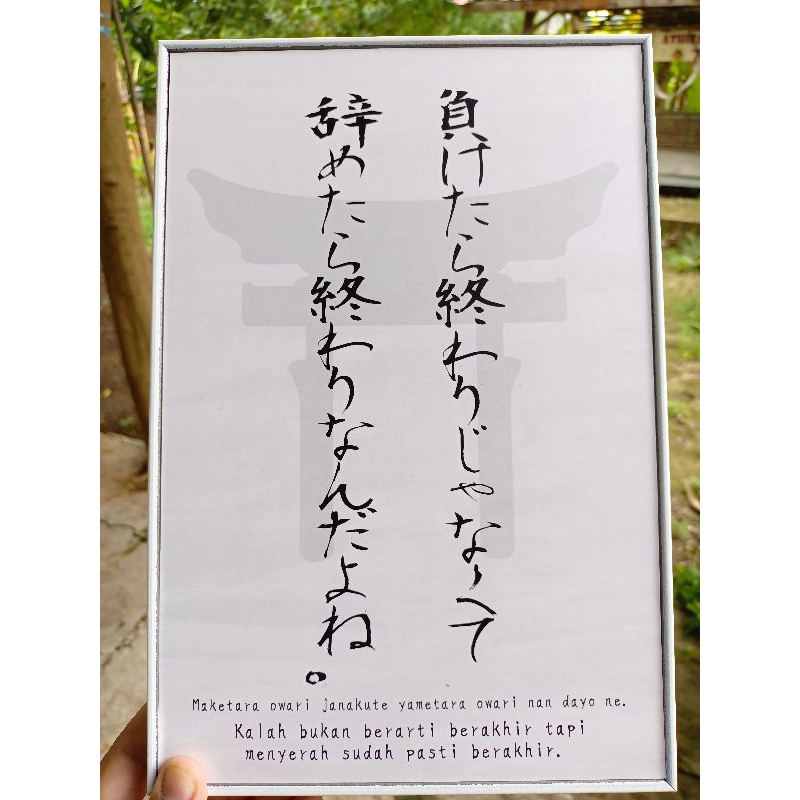 負けたら終わりじゃなくて
辞めたら終わりなんだよね。
Maketara owari janakute yametara owari nan dayo ne.
Kalah bukan berarti berakhir tapi
menyerah sudah pasti berakhir.